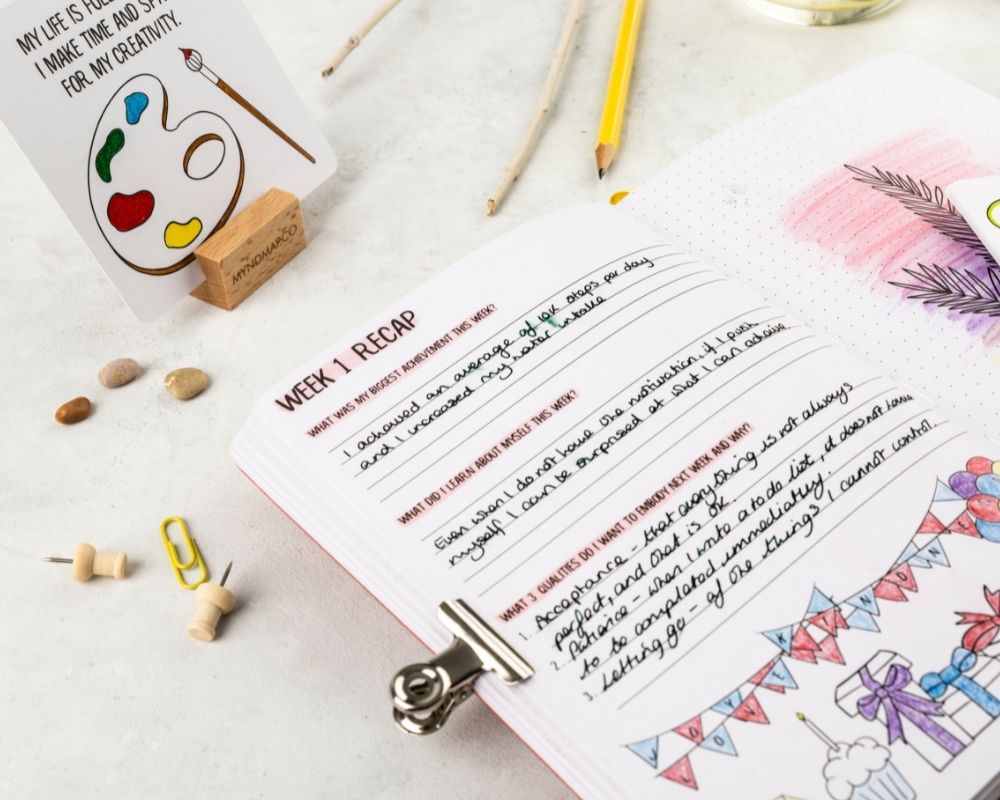 MY LIFE IS FULL
I MAKE TIME AND SPA
FOR MY CREATIVITY.
MYNDMAPCO
WEEK 1 RECAP
WHAT WAS MY BIGGEST ACHIEVEMENT THIS WEEK?
I achieved an average of 10K steps per day
and I increased my water intake
WHAT DID I LEARN ABOUT MYSELF THIS WEEK?
Even when I do not have the motivation, if I push
myself I can be surprised at what I can achieve.
WHAT 3 QUALITIES DO I WANT TO EMBODY NEXT WEEK AND WHY?
1. Acceptance - that everything is not always
perfect, and that is ok.
2. Patience - when I write a to do list, it does not have
to be completed immediatley.
3. Letting go - of the things I cannot control.